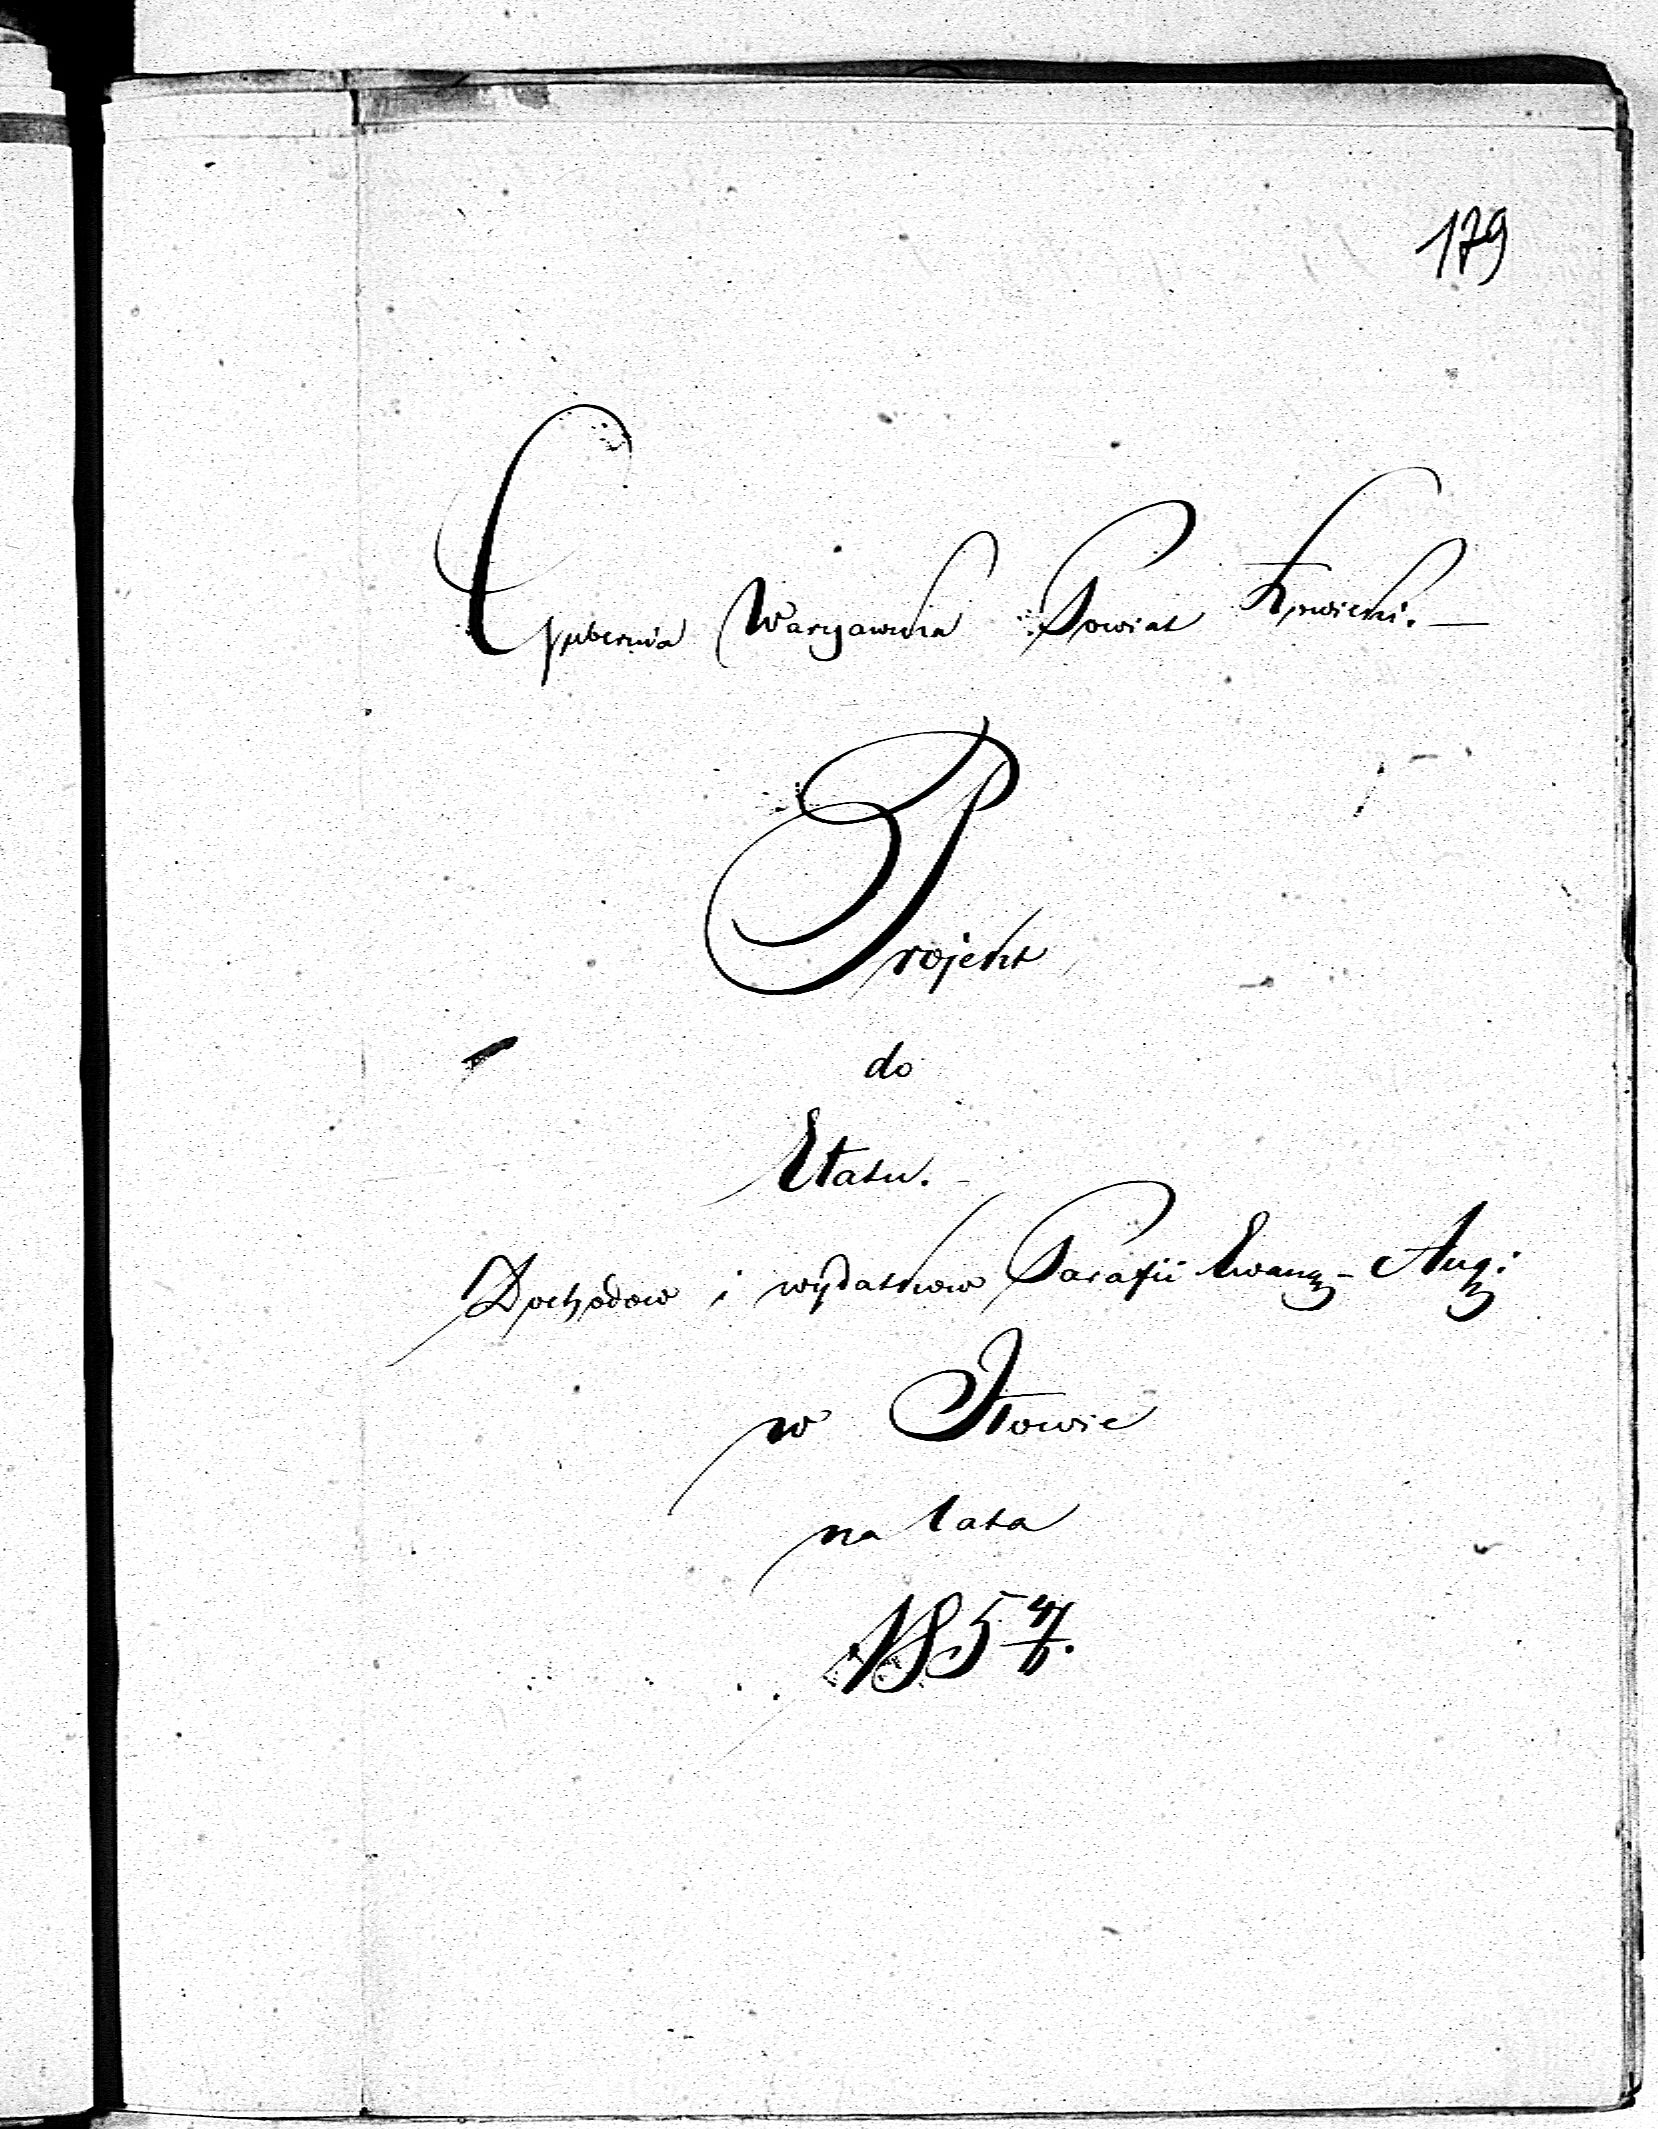 179
Gubernia Warszawska Powiat Łowicki. —
Projekt
do
Etatu.
Dochodow i wydatkow Parafii Ewang- Aug:
w Iłowie
na lata
185 4/6.